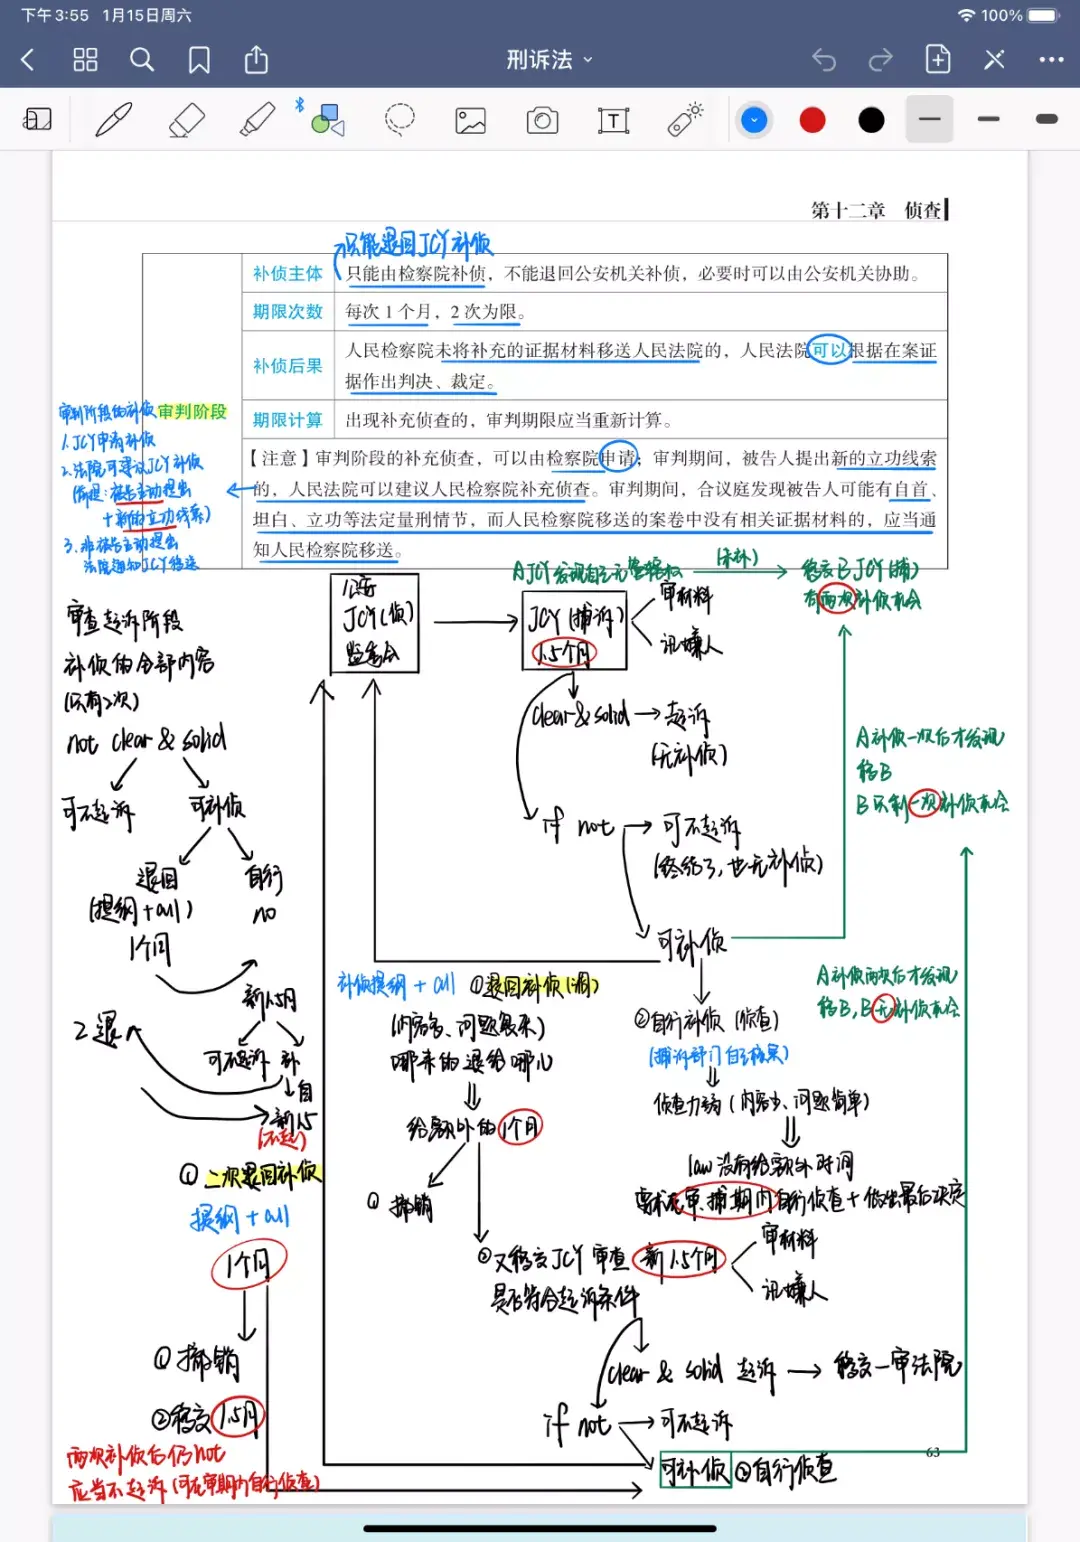 下午3:55 1月15日周六
100%
刑诉法
第十二章 侦查
只能退回JCY补侦
补侦主体 只能由检察院补侦，不能退回公安机关补侦，必要时可以由公安机关协助。
期限次数 每次1个月，2次为限。
补侦后果 人民检察院未将补充的证据材料移送人民法院的，人民法院可以根据在案证
据作出判决、裁定。
审判阶段
期限计算 出现补充侦查的，审判期限应当重新计算。
【注意】审判阶段的补充侦查，可以由检察院申请；审判期间，被告人提出新的立功线索
的，人民法院可以建议人民检察院补充侦查。审判期间，合议庭发现被告人可能有自首、
坦白、立功等法定量刑情节，而人民检察院移送的案卷中没有相关证据材料的，应当通
知人民检察院移送。
审判阶段的补侦
1.JCY申请补侦
2.法院可建议JCY补侦
(前提：被告主动提出
+新的立功线索)
3.非被告主动提出
法院通知JCY移送
公安
JCY(侦)
监委会
JCY(捕诉)
1.5个月
审材料
讯嫌人
A JCY发现自己无管辖权
(未补)
移交B JCY(捕)
有两次补侦机会
clear&solid → 起诉
(无补侦)
if not → 可不起诉
(终结了,也无补侦)
可补侦
A补侦一次后才发现
移B
B只剩一次补侦机会
A补侦两次后才发现
移B,B无补侦机会
审查起诉阶段
补侦的全部内容
(只有2次)
not clear & solid
可不起诉 可补侦
退回 自行
(提纲+all) no
1个月
新1.5月
2退
可不起诉 补
自
新1.5
(不起)
补侦提纲 + all
①退回补侦(溯)
(内容多、问题复杂)
哪来的退给哪儿
给额外的1个月
①撤销
②又移交JCY审查 新1.5个月
是否符合起诉条件
审材料
讯嫌人
②自行补侦(侦查)
(捕诉部门自己核实)
侦查力弱(内容少、问题简单)
law没有给额外时间
要求在审捕期内自行侦查+做出最后决定
clear & solid 起诉 → 移交一审法院
if not → 可不起诉
可补侦 ②自行侦查
①二次退回补侦
提纲 + all
1个月
①撤销
②移交1.5月
两次补侦后仍not
应当不起诉(可在审期内自行侦查)
63